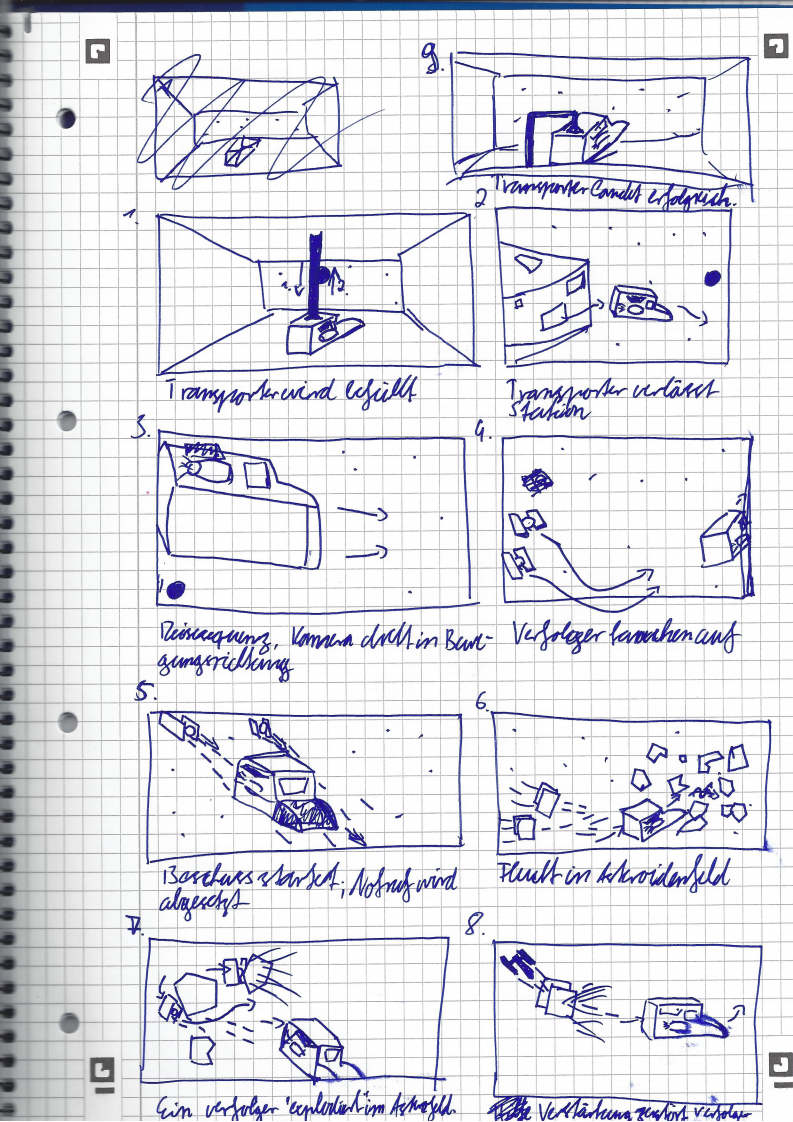 9.
Transporter landet erfolgreich.
1.
1. 2.
Transporter wird befüllt
2
Transporter verlässt
Station
3.
Reisesequenz, Kamera dreht in Bewe-
gungsrichtung
4.
Verfolger tauchen auf
5.
Beschuss startet, Notruf wird
abgesetzt
6.
Flucht in Asteroidenfeld
7.
Ein verfolger "explodiert" im Astrofeld.
8.
Verstärkung zerstört verfolger